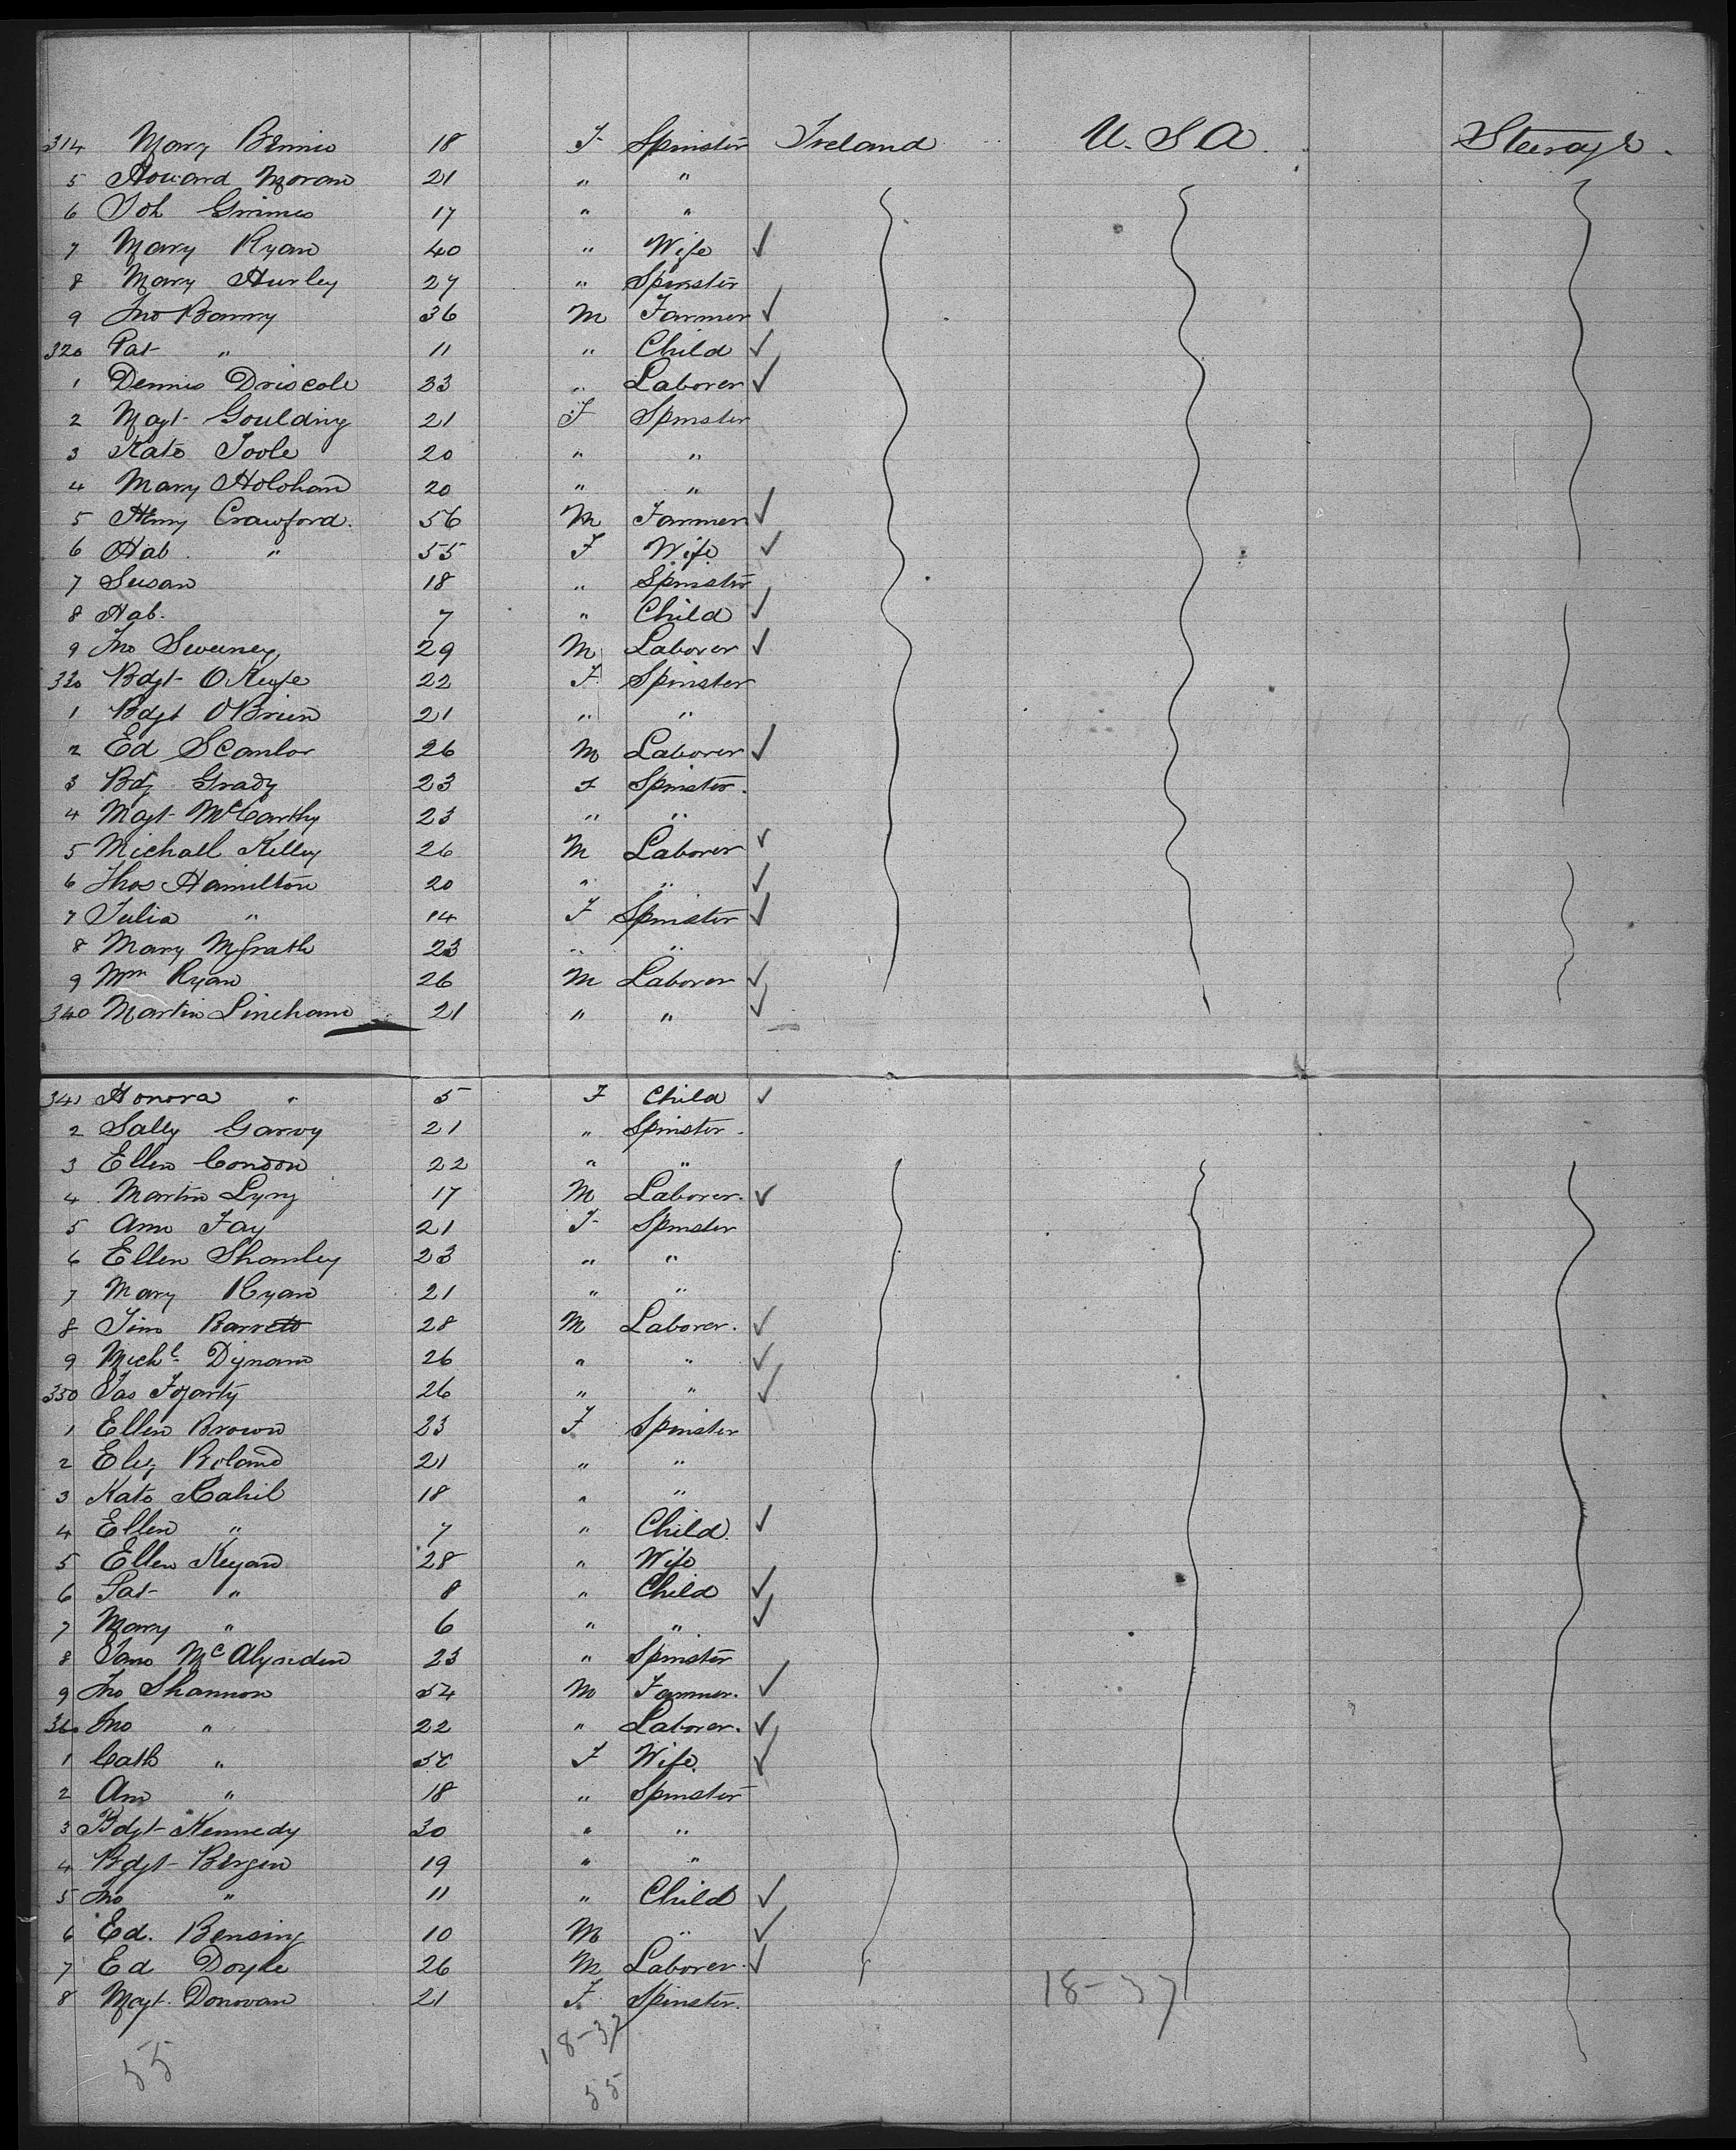 314 Mary Bennis 18 F Spinster Ireland U.S.A. Steerage.
5 Howard Moran 21 " "
6 Joh Grimes 17 " "
7 Mary Ryan 40 " Wife ✓
8 Mary Hurley 27 " Spinster
9 Jno Barry 36 M Farmer ✓
320 Pat " 11 " Child ✓
1 Dennis Driscole 33 " Laborer ✓
2 Magt Goulding 21 F Spinster
3 Kate Toole 20 " "
4 Mary Holohan 20 " "
5 Henry Crawford. 56 M Farmer ✓
6 Hab " 55 F Wife ✓
7 Susan 18 " Spinster
8 Hab. 7 " Child ✓
9 Jno Sweeney 29 M Laborer ✓
330 Bdgt O Keefe 22 F Spinster
1 Bdgt O'Brien 21 " "
2 Ed Scanlor 26 M Laborer ✓
3 Bdg Grady 23 F Spinster.
4 Magt McCarthy 23 " "
5 Michall Kelley 26 M Laborer ✓
6 Thos Hamilton 20 " " ✓
7 Julia " 14 F Spinster ✓
8 Mary McGrath 23 " "
9 Wm Ryan 26 M Laborer ✓
340 Martin Linehane 21 " " ✓
341 Honora " 5 F Child ✓
2 Sally Garvy 21 " Spinster.
3 Ellen Condon 22 " "
4 Martin Lyng 17 M Laborer. ✓
5 Ann Fay 21 F Spinster
6 Ellen Shanley 23 " "
7 Mary Ryan 21 " "
8 Jim Barrett 28 M Laborer. ✓
9 Michl. Dignam 26 " " ✓
350 Jas Fogarty 26 " " ✓
1 Ellen Brown 23 F Spinster
2 Eliz Boland 21 " "
3 Kate Cahil 18 " "
4 Ellen " 7 " Child. ✓
5 Ellen Keyan 28 " Wife
6 Pat " 8 " Child ✓
7 Mary " 6 " " ✓
8 Jane Mc 23 " Spinster
9 Jno Shannon 54 M Farmer. ✓
360 Jno " 22 " Laborer. ✓
1 Cath " F Wife. ✓
2 Ann " 18 " Spinster
3 Bdgt Kennedy 30 " "
4 Bdgt Bergen 19 " "
5 Jno " 11 " Child ✓
6 Ed. Bensing 10 M " ✓
7 Ed Doyle 26 M Laborer. ✓
8 Magt. Donovan 21 F Spinster.
18-37
18-37
55
55